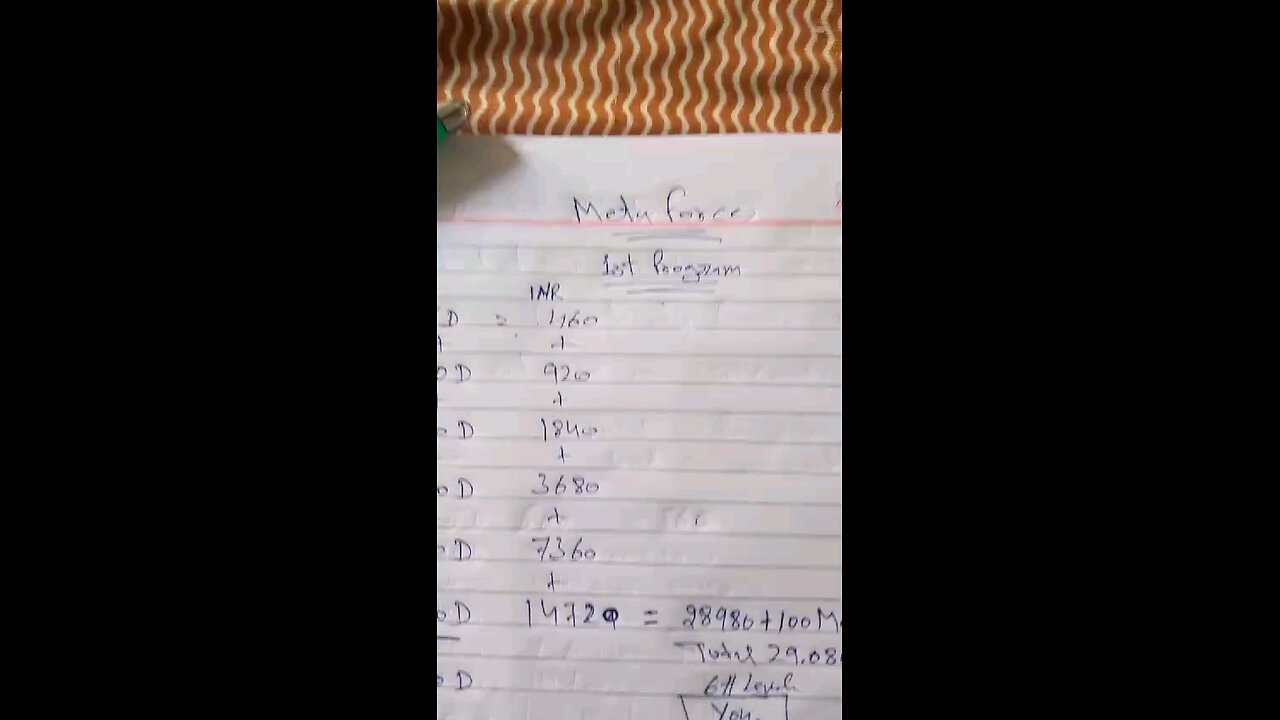 Meta force
1st Program
INR
D = 460
+ +
0D 920
+
0D 1840
+
0D 3680
+
0D 7360
+
0D 14720 = 28980+100M
Total 29,08
D 6th Level
You